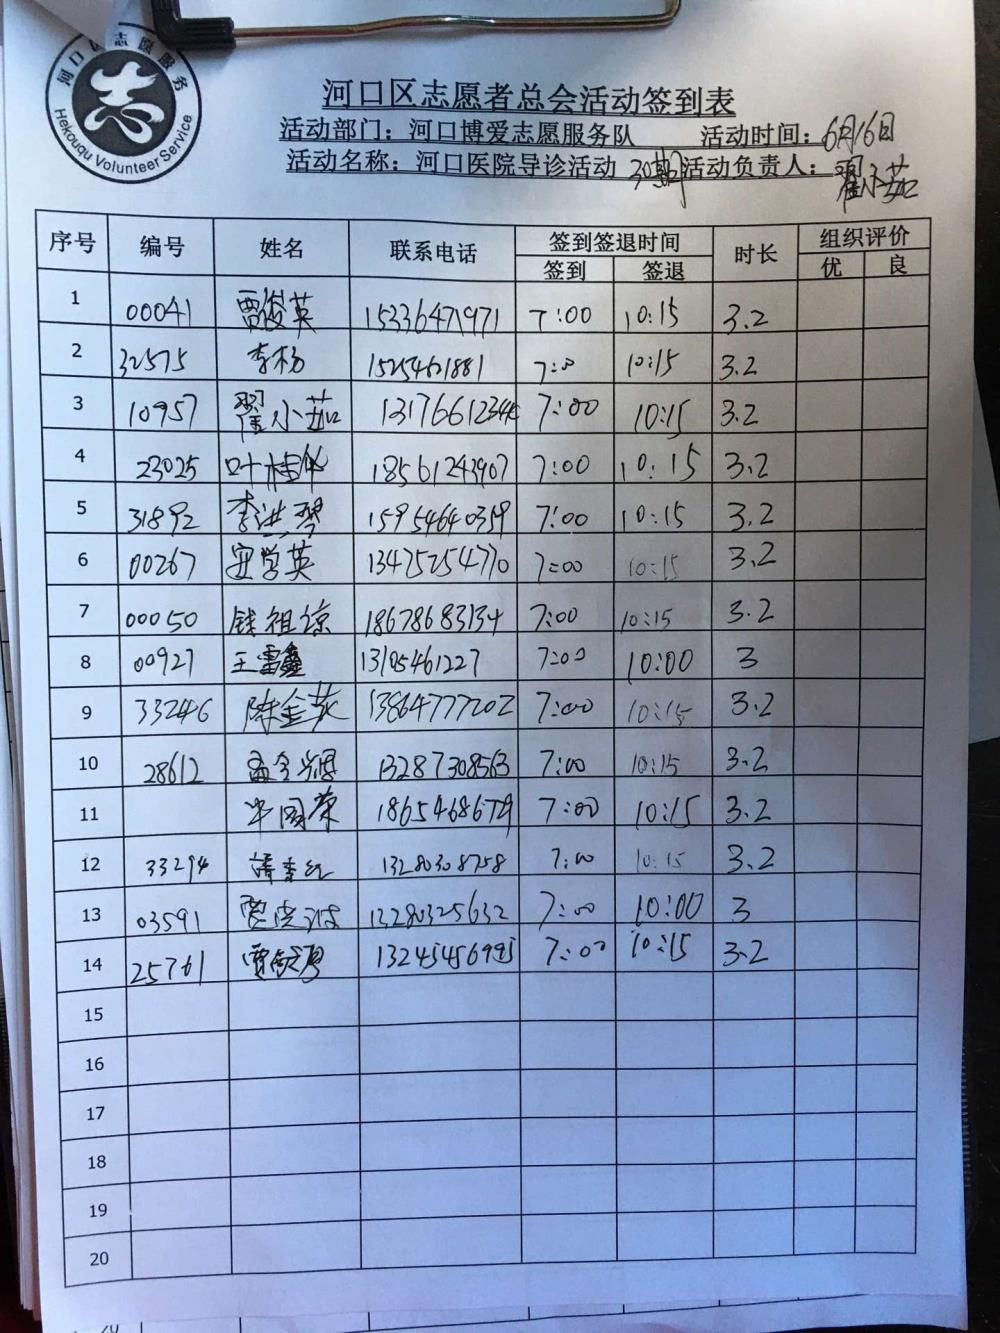 河口区志愿服务
Hekouqu Volunteer Service
河口区志愿者总会活动签到表
活动部门：河口博爱志愿服务队 活动时间：6月16日
活动名称：河口医院导诊活动 30期 活动负责人：翟小茹
序号 编号 姓名 联系电话 签到签退时间 时长 组织评价
签到 签退 优 良
1 00041 贾俊英 15336471971 7:00 10:15 3.2
2 32575 李杨 15254621881 7:0 10:15 3.2
3 10957 翟小茹 13176612344 7:00 10:15 3.2
4 23025 叶桂华 18561243907 7:00 10:15 3.2
5 31892 李洪琴 15954640359 7:00 10:15 3.2
6 00267 安学英 13475254770 7:00 10:15 3.2
7 00050 钱祖谅 18678683134 7:00 10:15 3.2
8 00927 王雷鑫 13105461227 7:00 10:00 3
9 33246 陈金英 13864777202 7:00 10:15 3.2
10 28612 13287308563 7:00 10:15 3.2
11 国荣 1865468679 7:00 10:15 3.2
12 33294 13280308758 7:00 10:15 3.2
13 03591 贾 13280325632 7:00 10:00 3
14 25761 贾 13245456995 7:00 10:15 3.2
15
16
17
18
19
20
20